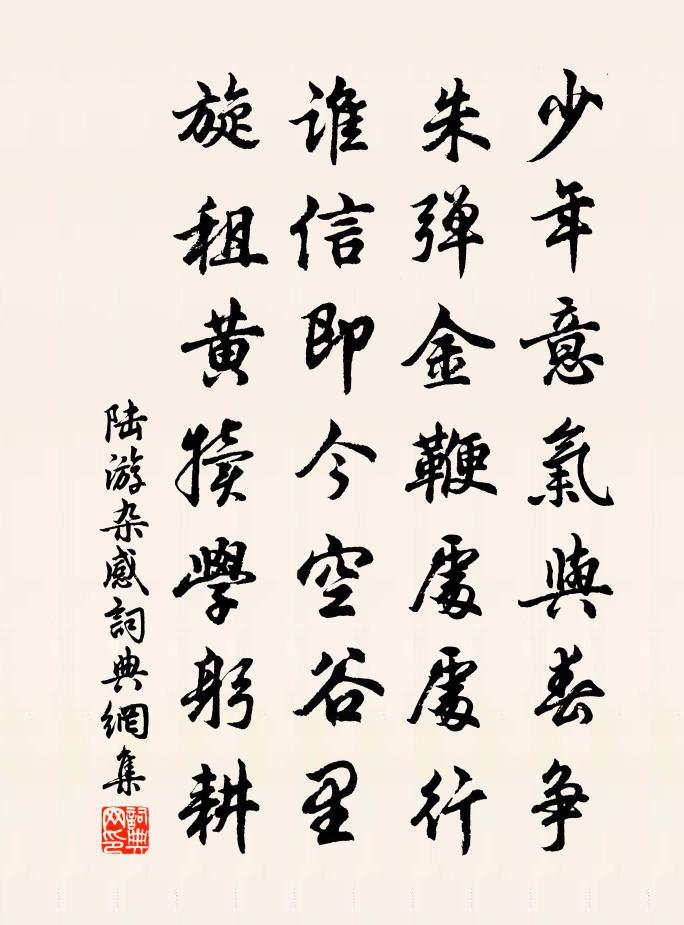 少年意氣與春争
朱弹金鞭處處行
誰信即今空谷里
旋租黄犢學躬耕
陆游杂感詞典網集
詞典网印